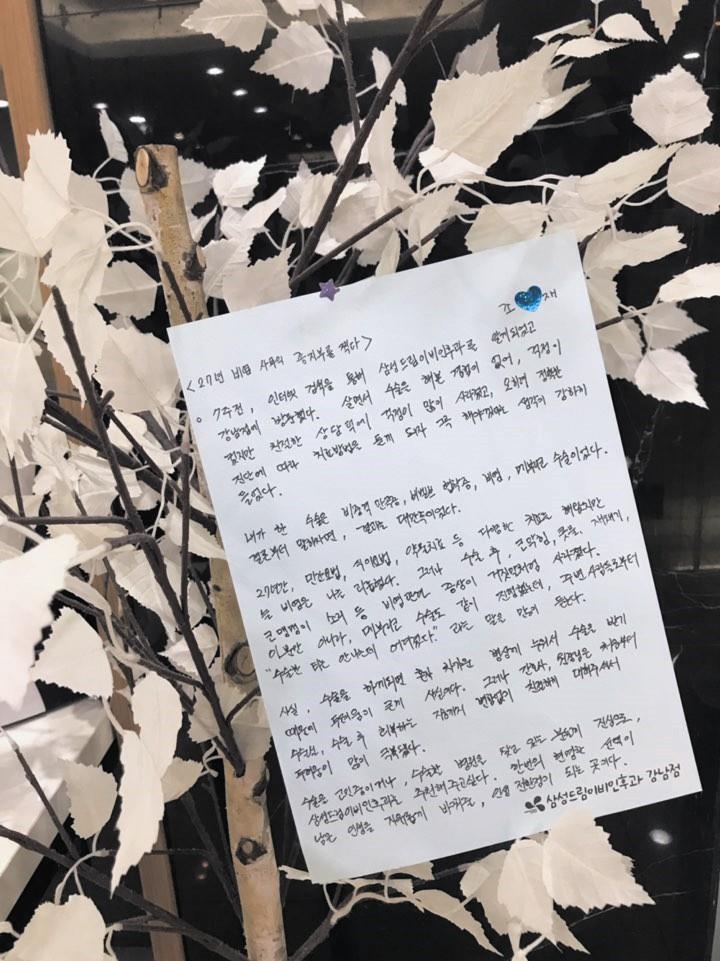 조 재
<27년 비염 사투의 종지부를 찍다>
7주전, 인터넷 검색을 통해 삼성드림이비인후과를 알게되었고
강남점에 방문했다. 살면서 수술은 해본 경험이 없어, 걱정이
컸지만 친절한 상담 덕에 걱정이 많이 사라졌고, 오히려 정확한
진단에 따라 치료방법을 듣게 되자 꼭 해야겠다는 생각이 강하게
들었다.
내가 한 수술은 비중격 만곡증, 비밸브 협착증, 비염, 매부리코 수술이었다.
결론부터 말하자면, 결과는 대만족이었다.
27년간, 민간요법, 식이요법, 약물치료 등 다양한 치료를 해왔지만
늘 비염은 나를 괴롭혔다. 그러나 수술 후, 코막힘, 콧물, 재채기,
코맹맹이 소리 등 비염관련 증상이 거짓말처럼 사라졌다.
이뿐만 아니라, 매부리코 수술도 같이 진행했는데, 주변 사람들로부터
"수술한 티는 안나는데 예뻐졌다." 라는 말을 많이 듣는다.
사실, 수술을 하게되면 혼자 차가운 병상에 누워서 수술을 받기
때문에 두려움이 크게 사실이다. 그러나 간호사, 원장님은 처음부터
수술실, 수술 후 회복하는 지금까지 변함없이 친절하게 대해주셔서
두려움이 많이 극복됐다.
수술을 고민중이거나, 수술할 병원을 찾고 있는 분들께 진심으로,
삼성드림이비인후과를 추천해주고싶다. 한번의 현명한 선택이
남은 인생을 지워줄게 바꿔줄, 인생 전환점이 되는 곳이다.
삼성드림이비인후과 강남점